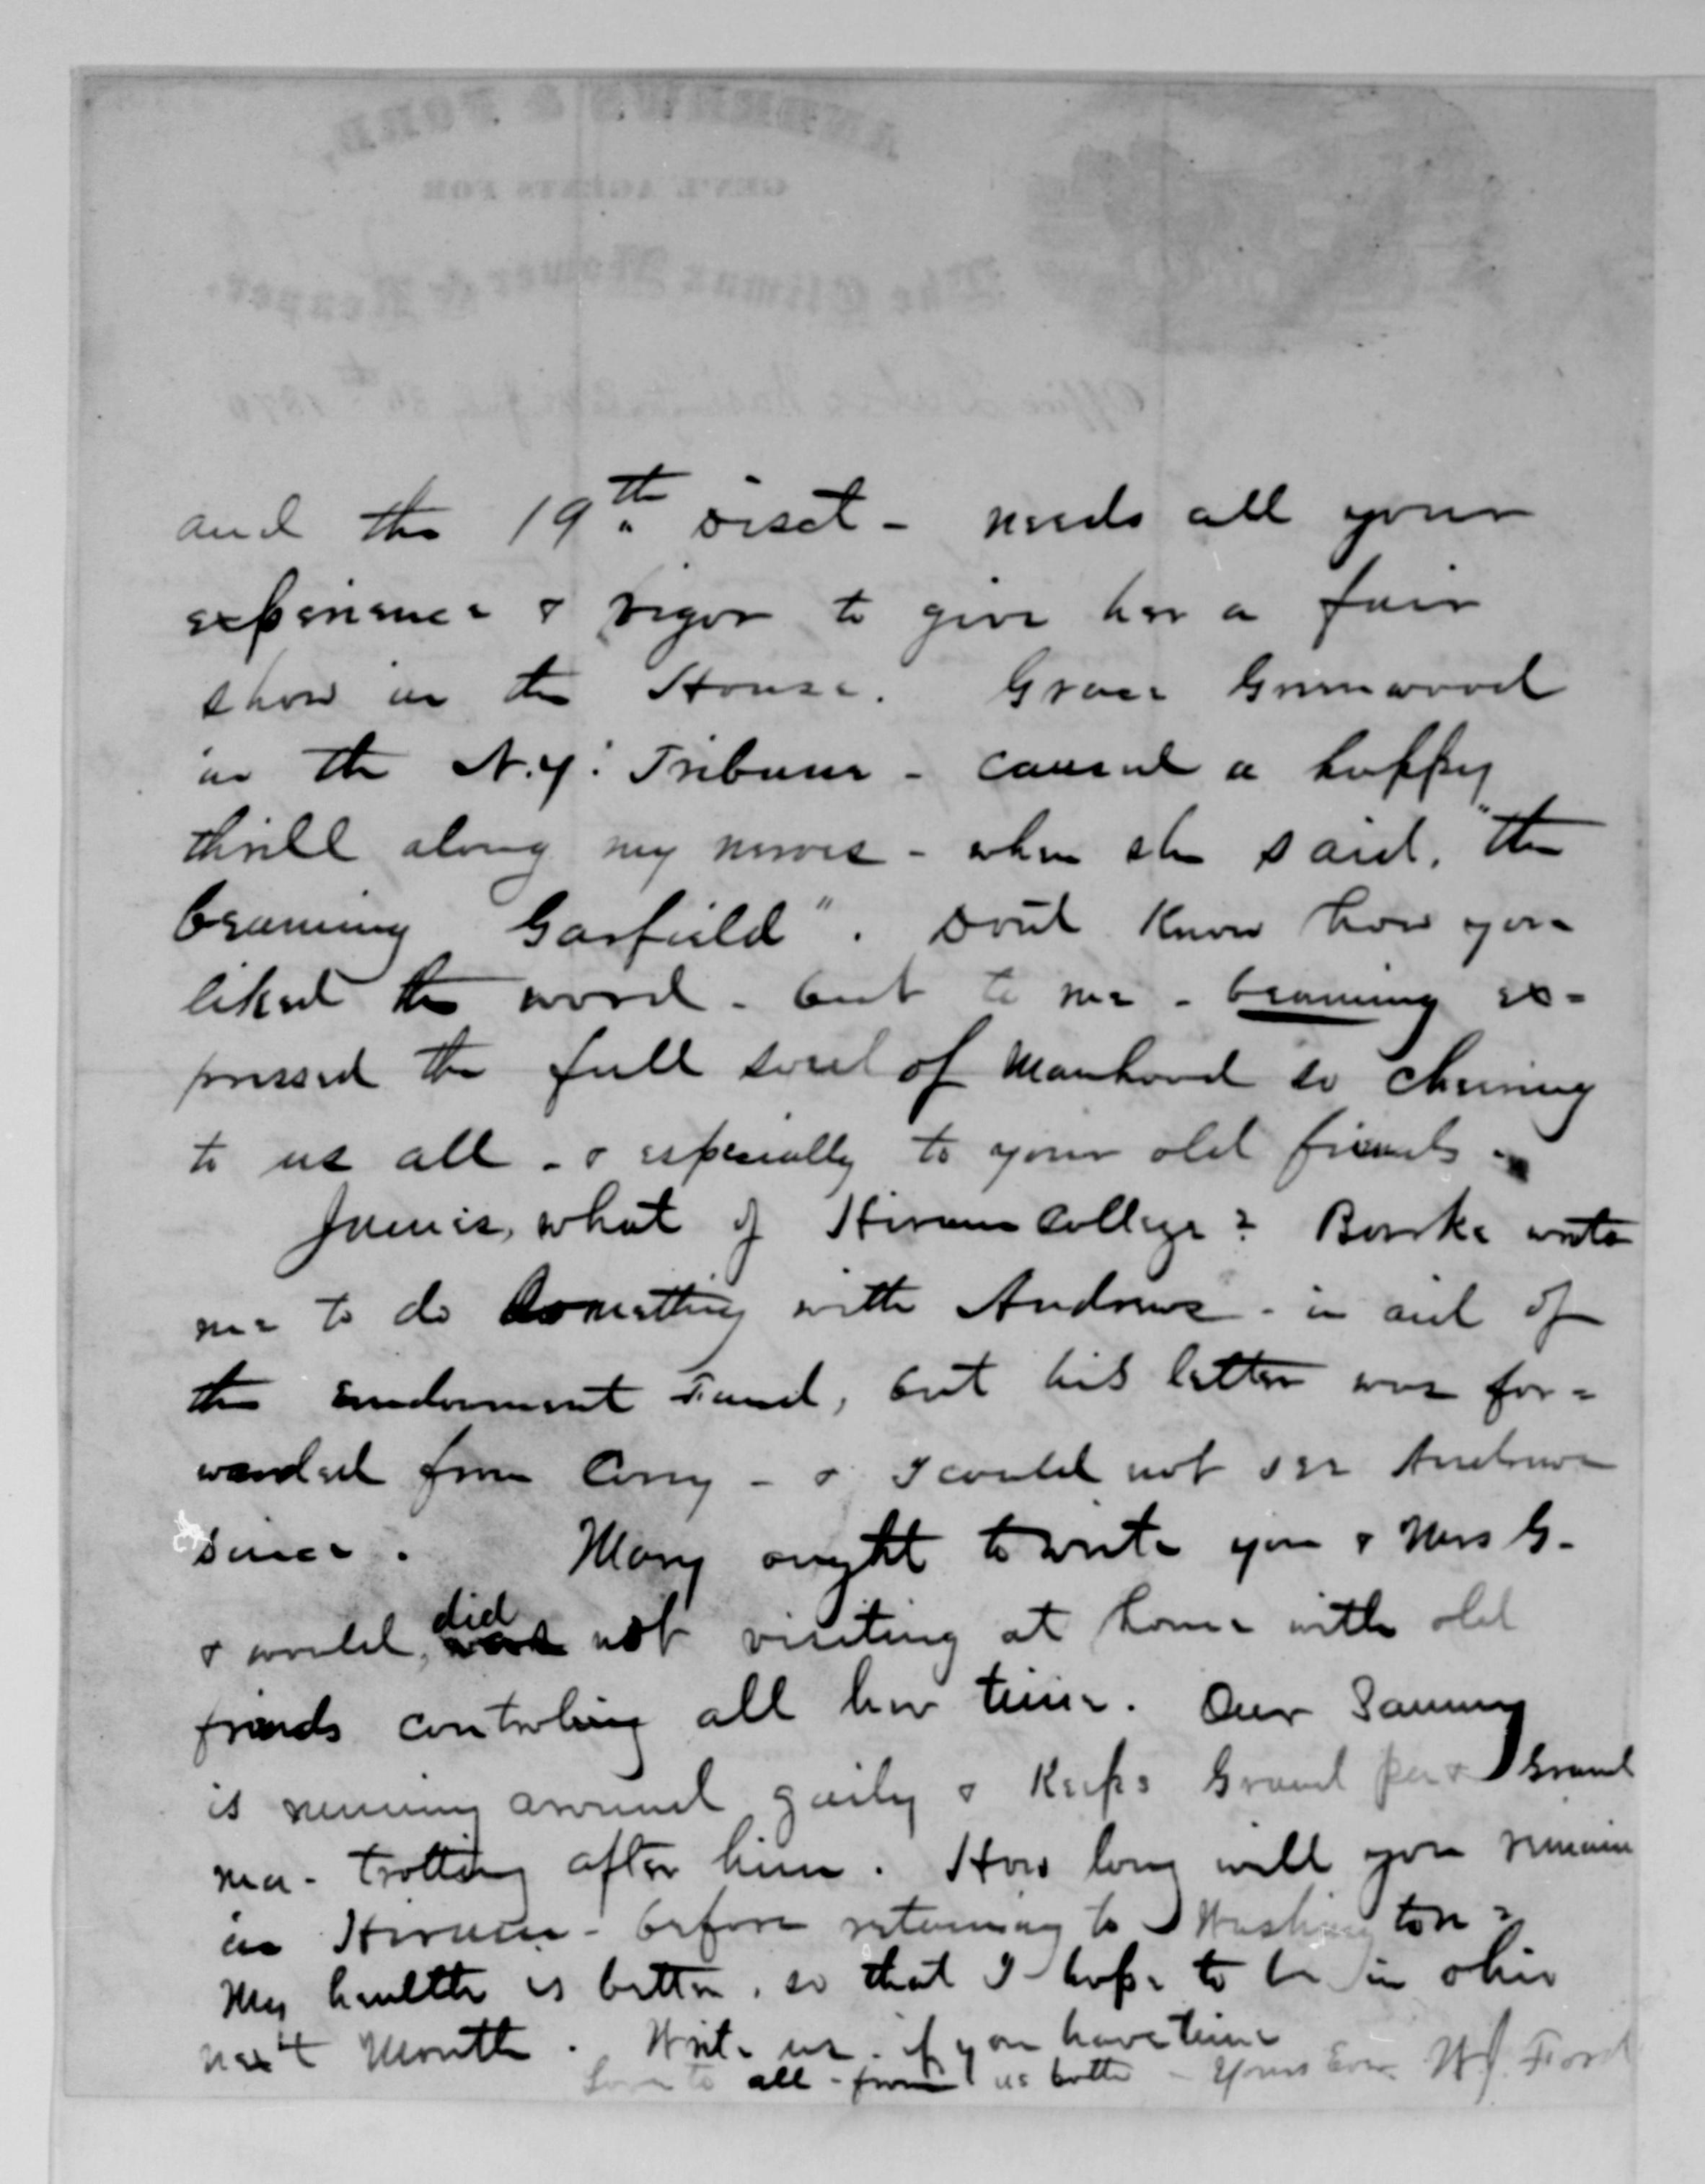 ANDREWS & FORD,
GEN'L AGENTS FOR
The Climax Mower & Reaper.
Office 1870
and the 19th Disct - needs all your
experience & vigor to give her a fair
show in the House. Grace Greenwood
in the N.Y. Tribune - caused a happy
thrill along my nerves - when she said, "the
beaming Garfield". Dont Know how you
liked the word - but to me - beaming ex-
pressed the full soul of Manhood so cheering
to us all - & especially to your old friends -
James, what of Hiram College? Burke wrote
me to do something with Andrews - in aid of
the Endowment Fund, but his letter was for-
warded from Corry - & I could not see Andrews
since. Mary ought to write you & Mrs G.
& would, did not visiting at home with old
friends controling all her time. Our Sammy
is running around gaily & Keeps Grand pa & Grand
ma - trotting after him. How long will you remain
in Hiram - before returning to Washington?
My health is better, so that I hope to be in Ohio
next Month. Write us - if you have time
Love to all - from us both - Yours Ever W.J. Ford